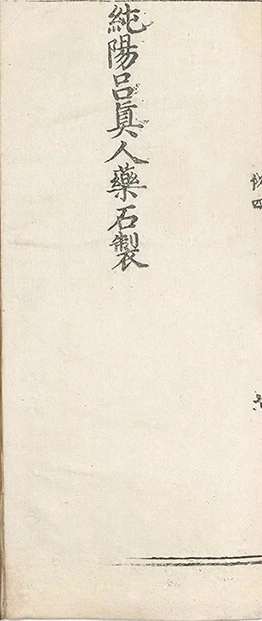 純陽呂真人藥石製